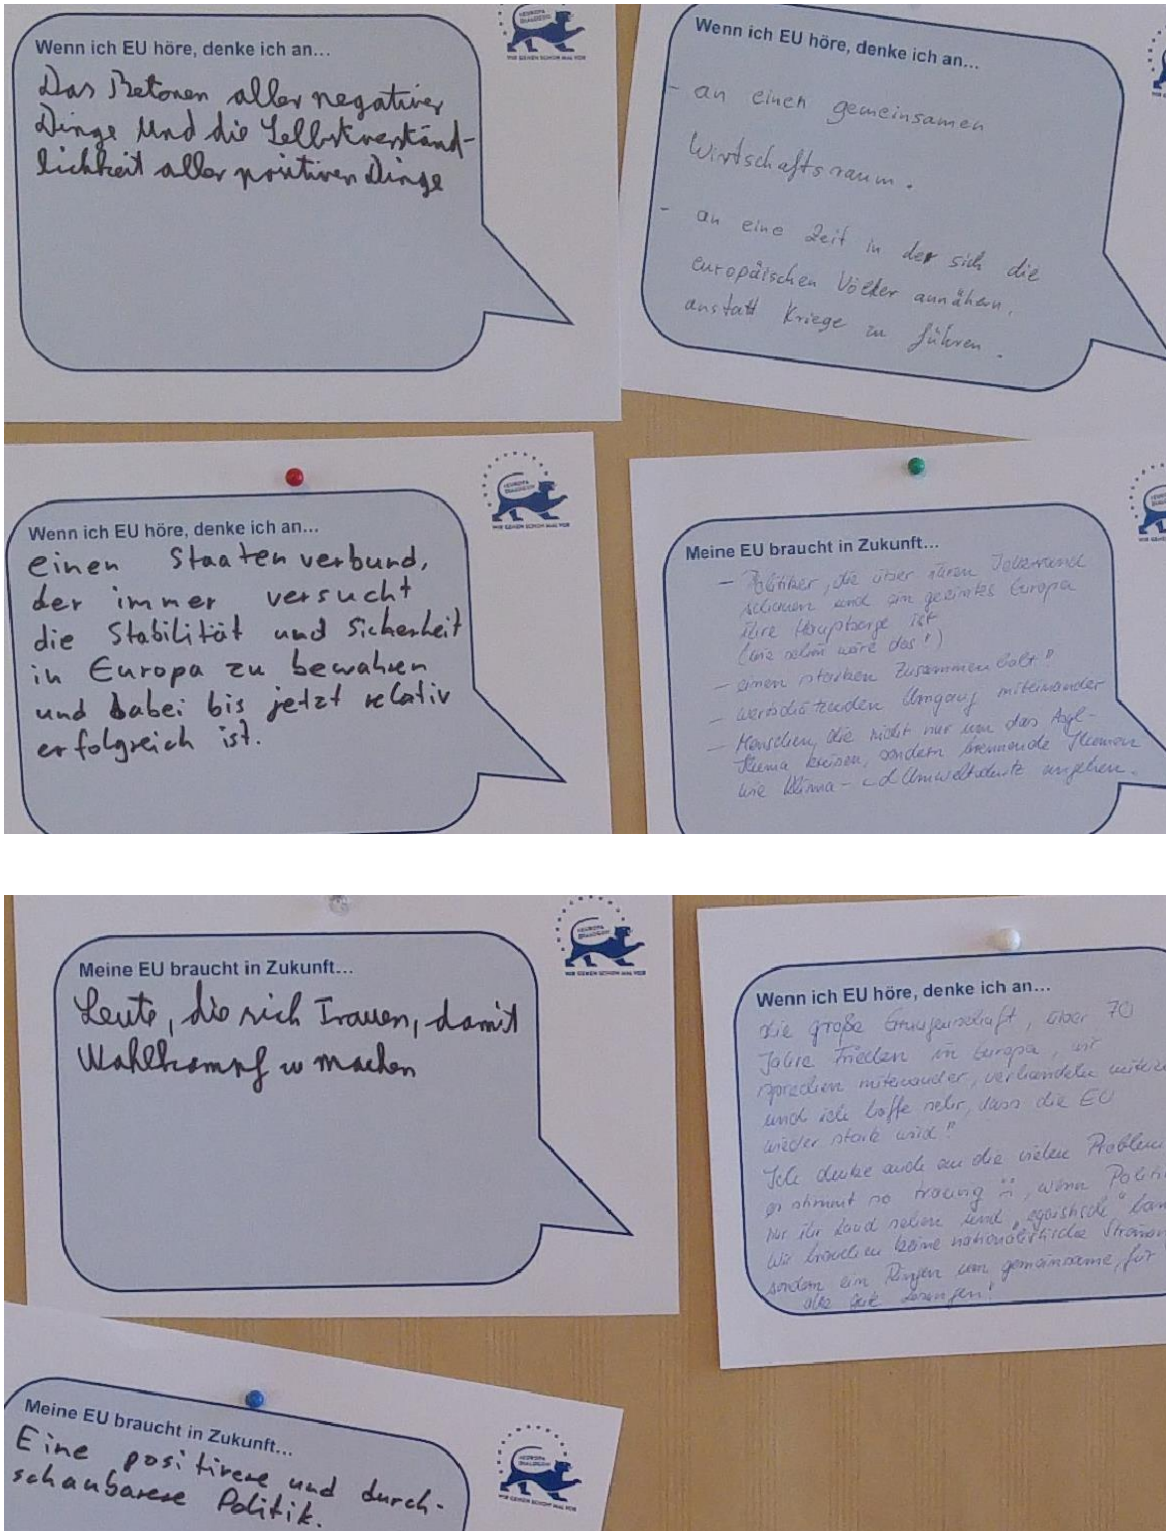 Wenn ich EU höre, denke ich an...
Das Betonen aller negativer
Dinge und die Selbstverständ-
lichkeit aller positiven Dinge
#EUROPA
DIALOGE
WIR GEHEN SCHON MAL VOR
Wenn ich EU höre, denke ich an...
- an einen gemeinsamen
Wirtschaftsraum.
- an eine Zeit in der sich die
europäischen Völker annähern,
anstatt Kriege zu führen.
Wenn ich EU höre, denke ich an...
einen Staatenverbund,
der immer versucht
die Stabilität und Sicherheit
in Europa zu bewahren
und dabei bis jetzt relativ
erfolgreich ist.
WIR GEHEN SCHON MAL VOR
Meine EU braucht in Zukunft...
- Politiker, die über ihren Tellerrand
schauen und ein geeintes Europa
ihre Hauptsorge ist
(wie schön wäre das!)
- einen starken Zusammenhalt!
- wertschätzenden Umgang miteinander
- Menschen, die nicht nur um das Asyl-
thema kreisen, sondern brennende Themen
wie Klima- und Umweltschutz angehen.
Meine EU braucht in Zukunft...
Leute, die sich trauen, damit
Wahlkampf zu machen
WIR GEHEN SCHON MAL VOR
Wenn ich EU höre, denke ich an...
die große Errungenschaft, über 70
Jahre Frieden in Europa, wir
sprechen miteinander, verhandeln
und ich hoffe sehr, dass die EU
wieder stark wird!
Ich denke auch an die vielen Probleme
es stimmt so traurig, wenn
nur ihr Land sehen und „egoistisch"
wir brauchen keine nationalistische
sondern ein Ringen um gemeinsame, für
alle gute Lösungen!
Meine EU braucht in Zukunft...
Eine positivere und durch-
schaubarere Politik.
WIR GEHEN SCHON MAL VOR